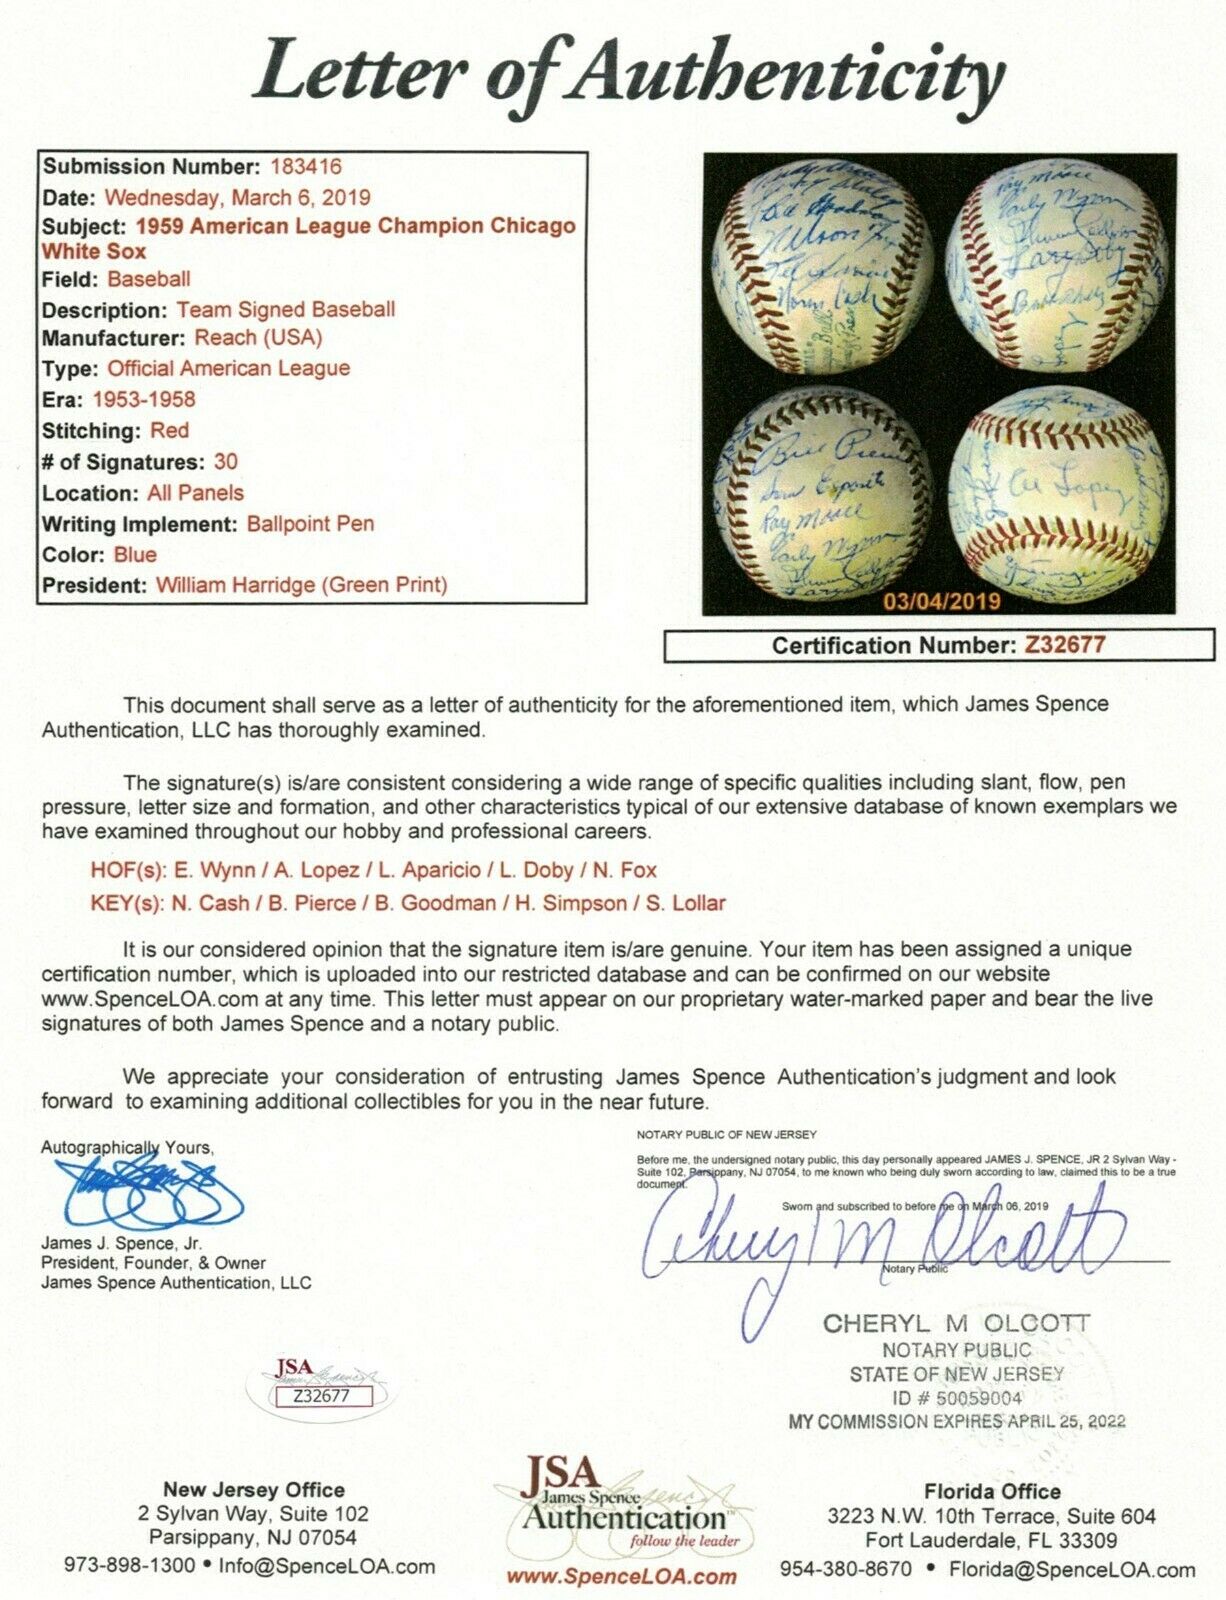 Letter of Authenticity
Submission Number: 183416
Date: Wednesday, March 6, 2019
Subject: 1959 American League Champion Chicago
White Sox
Field: Baseball
Description: Team Signed Baseball
Manufacturer: Reach (USA)
Type: Official American League
Era: 1953-1958
Stitching: Red
# of Signatures: 30
Location: All Panels
Writing Implement: Ballpoint Pen
Color: Blue
President: William Harridge (Green Print)
Billy Goodman
Nelson Fox
Norm Cash
Ray Moore
Early Wynn
Larry Doby
Lopez
Bill Pierce
Sam Esposito
Ray Moore
Early Wynn
Larry Doby
Al Lopez
03/04/2019
Certification Number: Z32677
This document shall serve as a letter of authenticity for the aforementioned item, which James Spence
Authentication, LLC has thoroughly examined.
The signature(s) is/are consistent considering a wide range of specific qualities including slant, flow, pen
pressure, letter size and formation, and other characteristics typical of our extensive database of known exemplars we
have examined throughout our hobby and professional careers.
HOF(s): E. Wynn / A. Lopez / L. Aparicio / L. Doby / N. Fox
KEY(s): N. Cash / B. Pierce / B. Goodman / H. Simpson / S. Lollar
It is our considered opinion that the signature item is/are genuine. Your item has been assigned a unique
certification number, which is uploaded into our restricted database and can be confirmed on our website
www.SpenceLOA.com at any time. This letter must appear on our proprietary water-marked paper and bear the live
signatures of both James Spence and a notary public.
We appreciate your consideration of entrusting James Spence Authentication's judgment and look
forward to examining additional collectibles for you in the near future.
Autographically Yours,
James J. Spence, Jr.
President, Founder, & Owner
James Spence Authentication, LLC
NOTARY PUBLIC OF NEW JERSEY
Before me, the undersigned notary public, this day personally appeared JAMES J. SPENCE, JR 2 Sylvan Way -
Suite 102, Parsippany, NJ 07054, to me known who being duly sworn according to law, claimed this to be a true
document.
Sworn and subscribed to before me on March 06, 2019
Cheryl M Olcott
Notary Public
CHERYL M OLCOTT
NOTARY PUBLIC
STATE OF NEW JERSEY
ID # 50059004
MY COMMISSION EXPIRES APRIL 25, 2022
JSA
Z32677
New Jersey Office
2 Sylvan Way, Suite 102
Parsippany, NJ 07054
973-898-1300 • Info@SpenceLOA.com
JSA
James Spence
Authentication™
follow the leader
www.SpenceLOA.com
Florida Office
3223 N.W. 10th Terrace, Suite 604
Fort Lauderdale, FL 33309
954-380-8670 • Florida@SpenceLOA.com